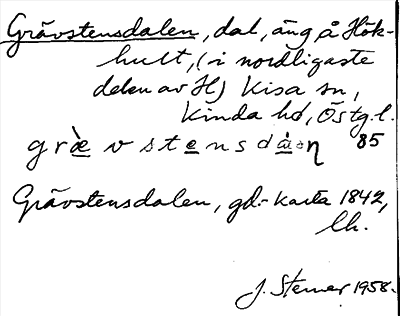 Grävstensdalen, dal, äng å Hök-
hult, (i nordligaste
delen av H) Kisa sn,
Kinda hd, Östg.l.
85
Grävstensdalen, gd.- karta 1842,
lh.
J. Sterner 1958.